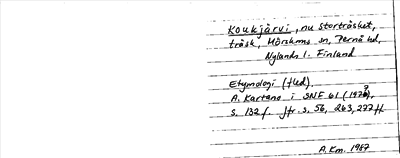 Koukjärvi, nu Storträsket,
träsk, Mörskoms sn, Pernå hd,
Nylands l. Finland
Etymologi (fled).
A. Kartano i SNF 61 (1973),
s. 132 f. Jfr s. 56, 263, 277 ff
A. Km. 1967